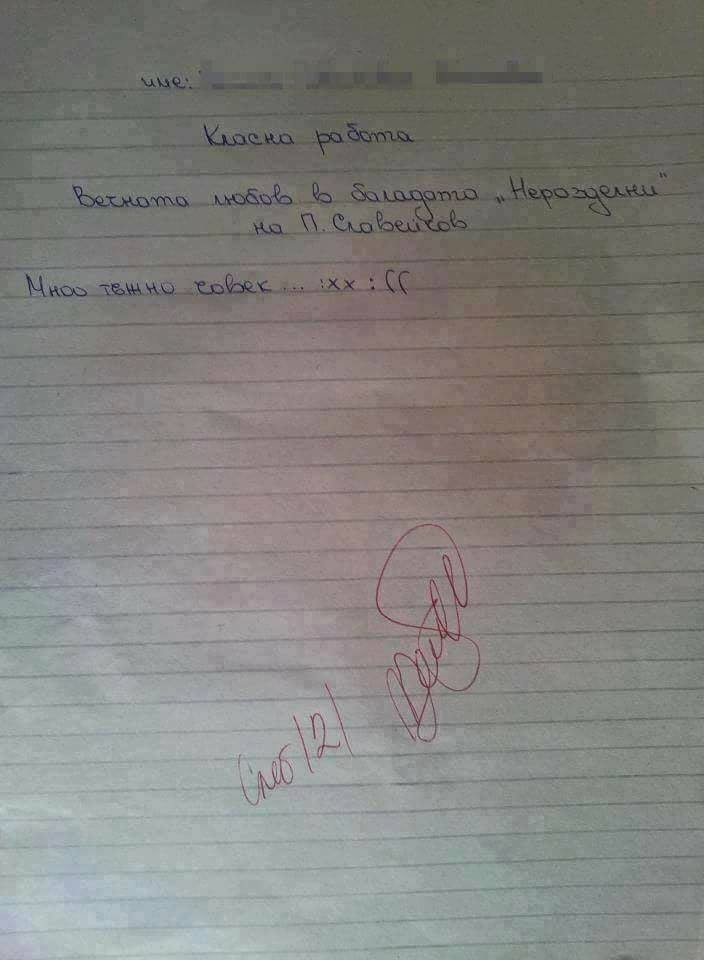 име:
Класна работа
Вечната любов в баладата „Неразделни"
на П. Славейков
Мноо тъжно човек ... :xx : ((
Слаб /2/